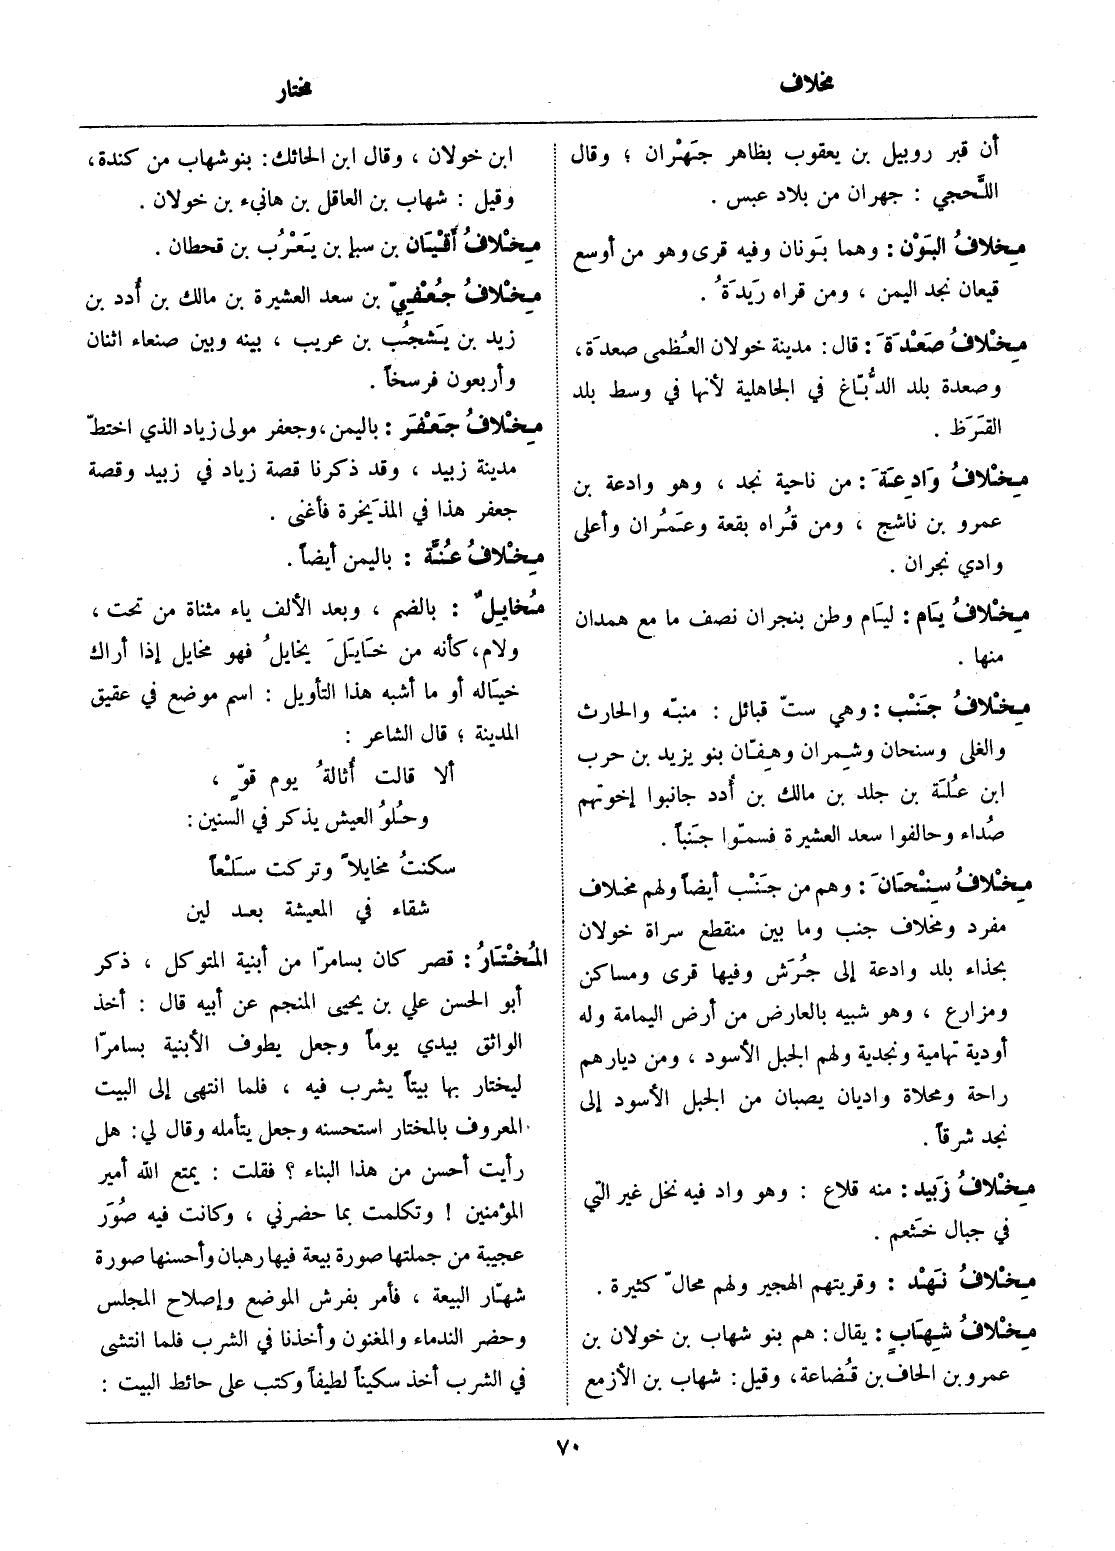 مخلاف
مختار
أن قبر روبيل بن يعقوب بظاهر جَهْران ؛ وقال
اللَّحجي : جهران من بلاد عبس .
مِخْلافُ البَوْن : وهما بَوَنان وفيه قرى وهو من أوسع
قيعان نجد اليمن ، ومن قراه رَيدَةُ .
مِخْلافُ صَعْدَةَ : قال : مدينة خولان العُظمى صعدة ،
وصعدة بلد الدُّبّاغ في الجاهلية لأنها في وسط بلد
القَرَظ .
مِخْلافُ وَادِعَةَ : من ناحية نجد ، وهو وادعة بن
عمرو بن ناشج ، ومن قُراه بقعة وعَمُران وأعلى
وادي نجران .
مِخْلافُ يَام : ليَام وطن بنجران نصف ما مع همدان
منها .
مِخْلافُ جَنْب : وهي ستّ قبائل : منبّه والحارث
والغلى وسنحان وشِمران وهِفّان بنو يزيد بن حرب
ابن عُلَة بن جلد بن مالك بن أُدد جانبوا إخوتهم
صُداء وحالفوا سعد العشيرة فسمّوا جَنباً .
مِخْلافُ سِنْحَانَ : وهم من جَنْب أيضاً ولهم مخلاف
مفرد ومخلاف جنب وما بين منقطع سراة خولان
بحذاء بلد وادعة إلى جُرَش وفيها قرى ومساكن
ومزارع ، وهو شبيه بالعارض من أرض اليمامة وله
أودية تهامية ونجدية ولهم الجبل الأسود ، ومن ديارهم
راحة ومحلاة واديان يصبان من الجبل الأسود إلى
نجد شرقاً .
مِخْلافُ زَبيد : منه قلاع : وهو واد فيه نخل غير التي
في جبال خَثعم .
مِخْلافُ نَهْد : وقريتهم الهجير ولهم محالّ كثيرة .
مِخْلافُ شِهَابٍ : يقال : هم بنو شهاب بن خولان بن
عمرو بن الحاف بن قُضاعة ، وقيل : شهاب بن الأزمع
ابن خولان ، وقال ابن الحائك : بنو شهاب من كندة ،
وقيل : شهاب بن العاقل بن هانىء بن خولان .
مِخْلافُ أَقْيَان بن سبإ بن يَعْرُب بن قحطان .
مِخْلافُ جُعْفِيّ بن سعد العشيرة بن مالك بن أُدد بن
زيد بن يَشجُب بن عريب ، بينه وبين صنعاء اثنان
وأربعون فرسخاً .
مِخْلافُ جَعْفَرَ : باليمن ، وجعفر مولى زياد الذي اختطّ
مدينة زبيد ، وقد ذكرنا قصة زياد في زبيد وقصة
جعفر هذا في المذَيخرة فأغنى .
مِخْلافُ عُنَّة : باليمن أيضاً .
مُخايِلٌ : بالضم ، وبعد الألف ياء مثناة من تحت ،
ولام ، كأنه من خَايَلَ يخايلُ فهو مخايل إذا أراك
خيَاله أو ما أشبه هذا التأويل : اسم موضع في عقيق
المدينة ؛ قال الشاعر :
ألا قالت أُثالةُ يوم قوٍّ ،
وحُلوُ العيش يذكر في السنين :
سكنتُ مخايلاً وتركت سَلْعاً
شقاء في المعيشة بعد لين
المُخْتَارُ : قصر كان بسامرّا من أبنية المتوكل ، ذكر
أبو الحسن علي بن يحيى المنجم عن أبيه قال : أخذ
الواثق بيدي يوماً وجعل يطوف الأبنية بسامرّا
ليختار بها بيتاً يشرب فيه ، فلما انتهى إلى البيت
المعروف بالمختار استحسنه وجعل يتأمله وقال لي : هل
رأيت أحسن من هذا البناء ؟ فقلت : يمتع الله أمير
المؤمنين ! وتكلمت بما حضرني ، وكانت فيه صُوَر
عجيبة من جملتها صورة بيعة فيها رهبان وأحسنها صورة
شهّار البيعة ، فأمر بفرش الموضع وإصلاح المجلس
وحضر الندماء والمغنون وأخذنا في الشرب فلما انتشى
في الشرب أخذ سكيناً لطيفاً وكتب على حائط البيت :
٧٠